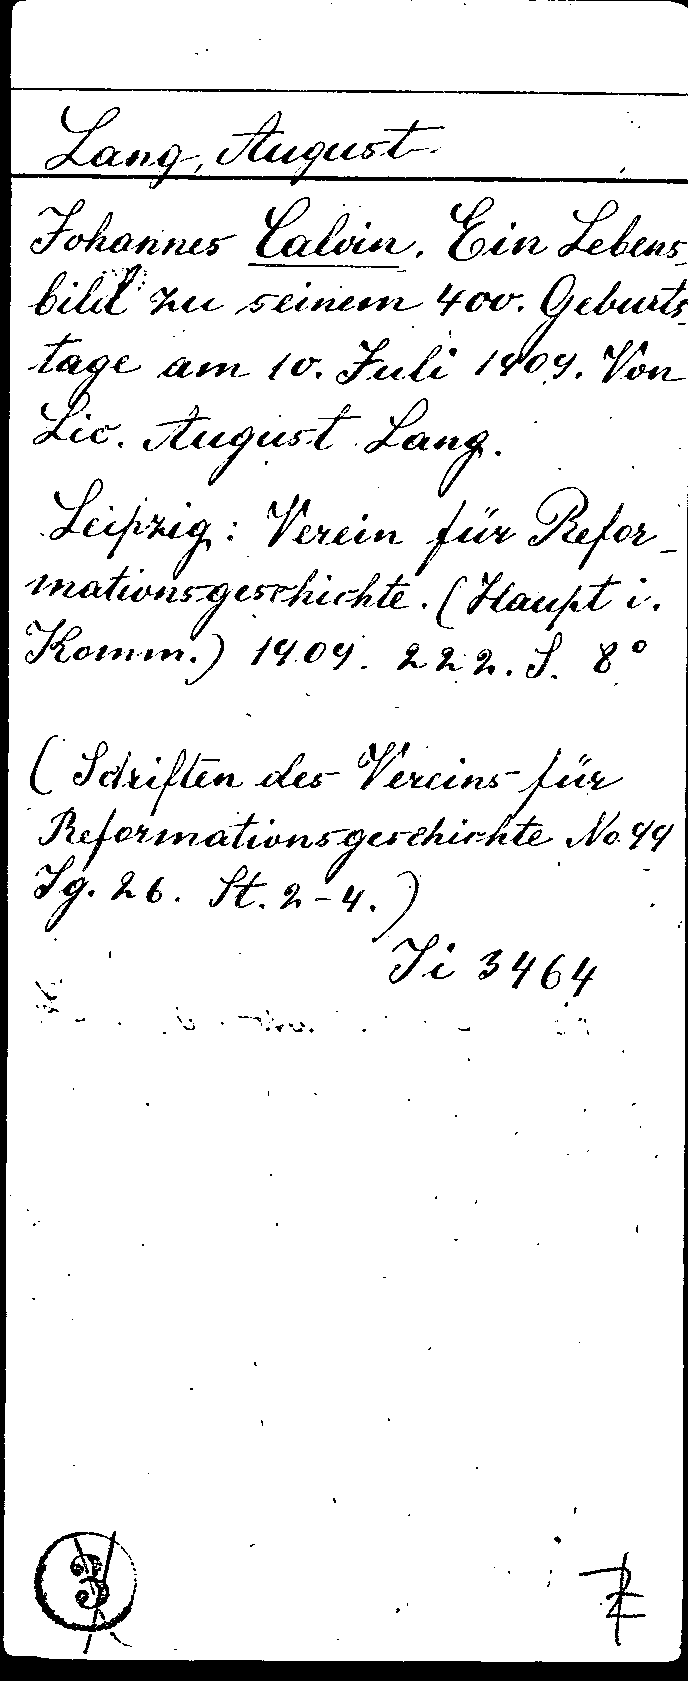 Lang, August.
Johannes Calvin. Ein Lebens-
bild zu seinem 400. Geburts-
tage am 10. Juli 1909. Von
Lic. August Lang.
Leipzig: Verein für Refor-
mationsgeschichte. (Haupt i.
Komm.) 1909. 222. S. 8°
(Schriften des Vereins für
Reformationsgeschichte No 99
Jg. 26. St. 2-4.)
Ji 3464
3